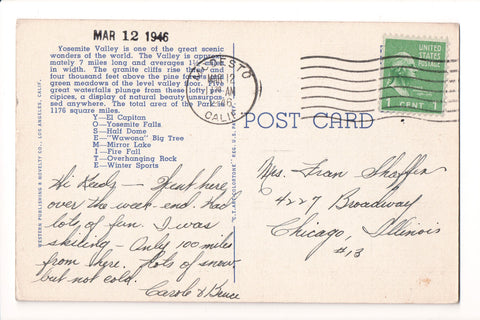 MAR 12 1946
Yosemite Valley is one of the great scenic
wonders of the world. The Valley is approxi-
mately 7 miles long and averages
in width. The granite cliffs rise three and
four thousand feet above the pine forests and
green meadows of the level valley floor.
great waterfalls plunge from these lofty
cipices, a display of natural beauty unsurpas-
sed anywhere. The total area of the Park
1176 square miles.
Y—El Capitan
O—Yosemite Falls
S—Half Dome
E—"Wawona" Big Tree
M—Mirror Lake
I—Fire Fall
T—Overhanging Rock
E—Winter Sports
WESTERN PUBLISHING & NOVELTY CO., LOS ANGELES, CALIF.
MODESTO
MAR 12
AM
1946
CALIF.
UNITED
STATES
POSTAGE
1 CENT 1
POST CARD
Hi Keeds – Spent here
over the week-end. Had
lots of fun. I was
skiing – Only 100 miles
from here. Lots of snow
but not cold.
Carole & Bruce
Mrs. Fran Shaffer
4227 Broadway
Chicago, Illinois
#13